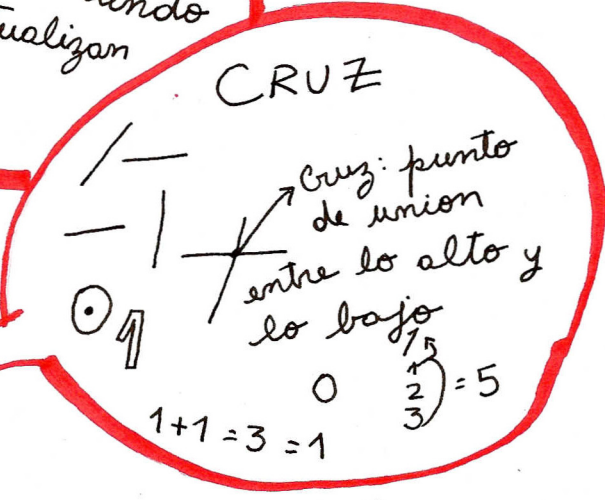 ualizan
CRUZ
Cruz: punto
de union
entre lo alto y
lo bajo
1
1
1
2 = 5
3
0
1+1=3=1